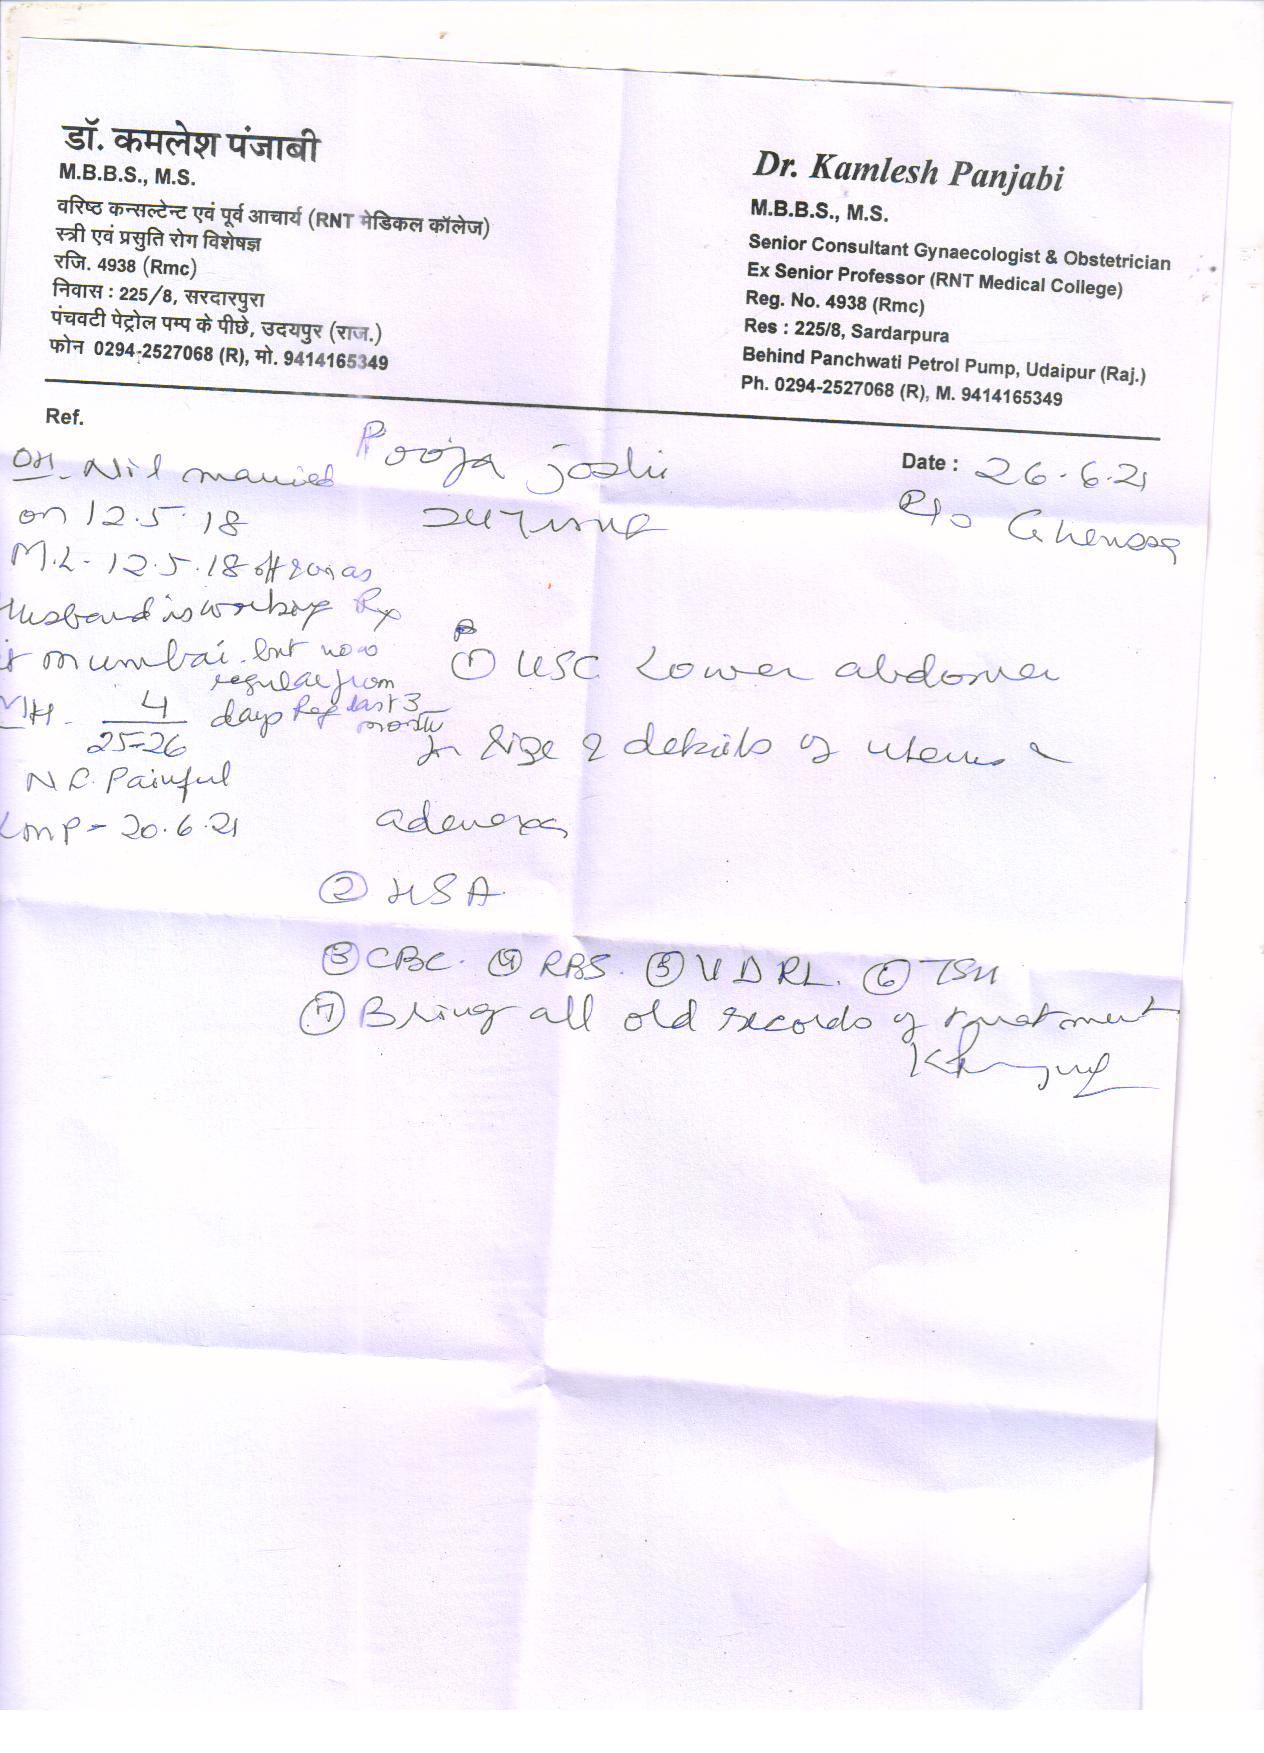 डॉ. कमलेश पंजाबी
M.B.B.S., M.S.
वरिष्ठ कन्सल्टेन्ट एवं पूर्व आचार्य (RNT मेडिकल कॉलेज)
स्त्री एवं प्रसुति रोग विशेषज्ञ
रजि. 4938 (Rmc)
निवास : 225/8, सरदारपुरा
पंचवटी पेट्रोल पम्प के पीछे, उदयपुर (राज.)
फोन 0294-2527068 (R), मो. 9414165349
Dr. Kamlesh Panjabi
M.B.B.S., M.S.
Senior Consultant Gynaecologist & Obstetrician
Ex Senior Professor (RNT Medical College)
Reg. No. 4938 (Rmc)
Res : 225/8, Sardarpura
Behind Panchwati Petrol Pump, Udaipur (Raj.)
Ph. 0294-2527068 (R), M. 9414165349
Ref.
Pooja Joshi
Date : 26.6.21
R/o
OH - Nil married
on 12.5.18
M.L - 12.5.18 off & on as
Husband is working
mumbai. but now
regular from
MH - 4/25-26 days Reg last 3 month
Painful
LMP - 20.6.21
① USG Lower abdomen
size & details of uterus &
adenexa
② HSA
③ CBC. ④ RBS. ⑤ VDRL. ⑥ TSH
⑦ Bring all old records of treatment